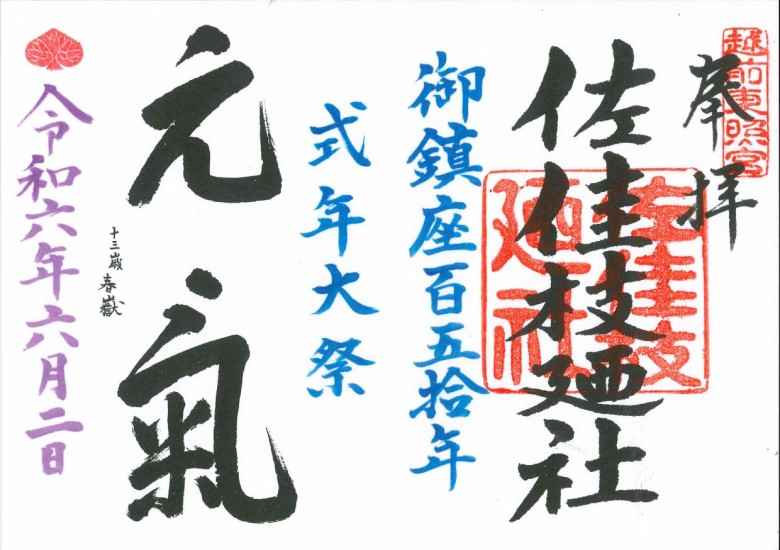 奉拝
越前東照宮
佐佳枝廼社
佐佳枝廼社
御鎮座百五拾年
式年大祭
元氣
十三歳 春嶽
令和六年六月二日